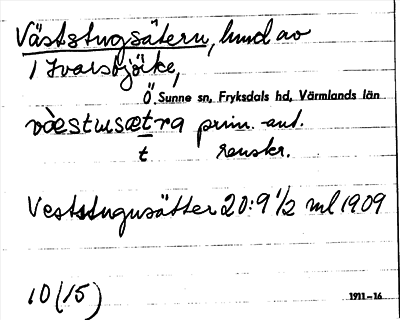 Väststugsätern, hmd av
1 Ivarsbjörke,
Ö. Sunne sn, Fryksdals hd, Värmlands län
væ̀stusætra prim. ant.
t renskr.
Veststugusätter 20:9 1/2 ml 1909
10 (15)
1911–16